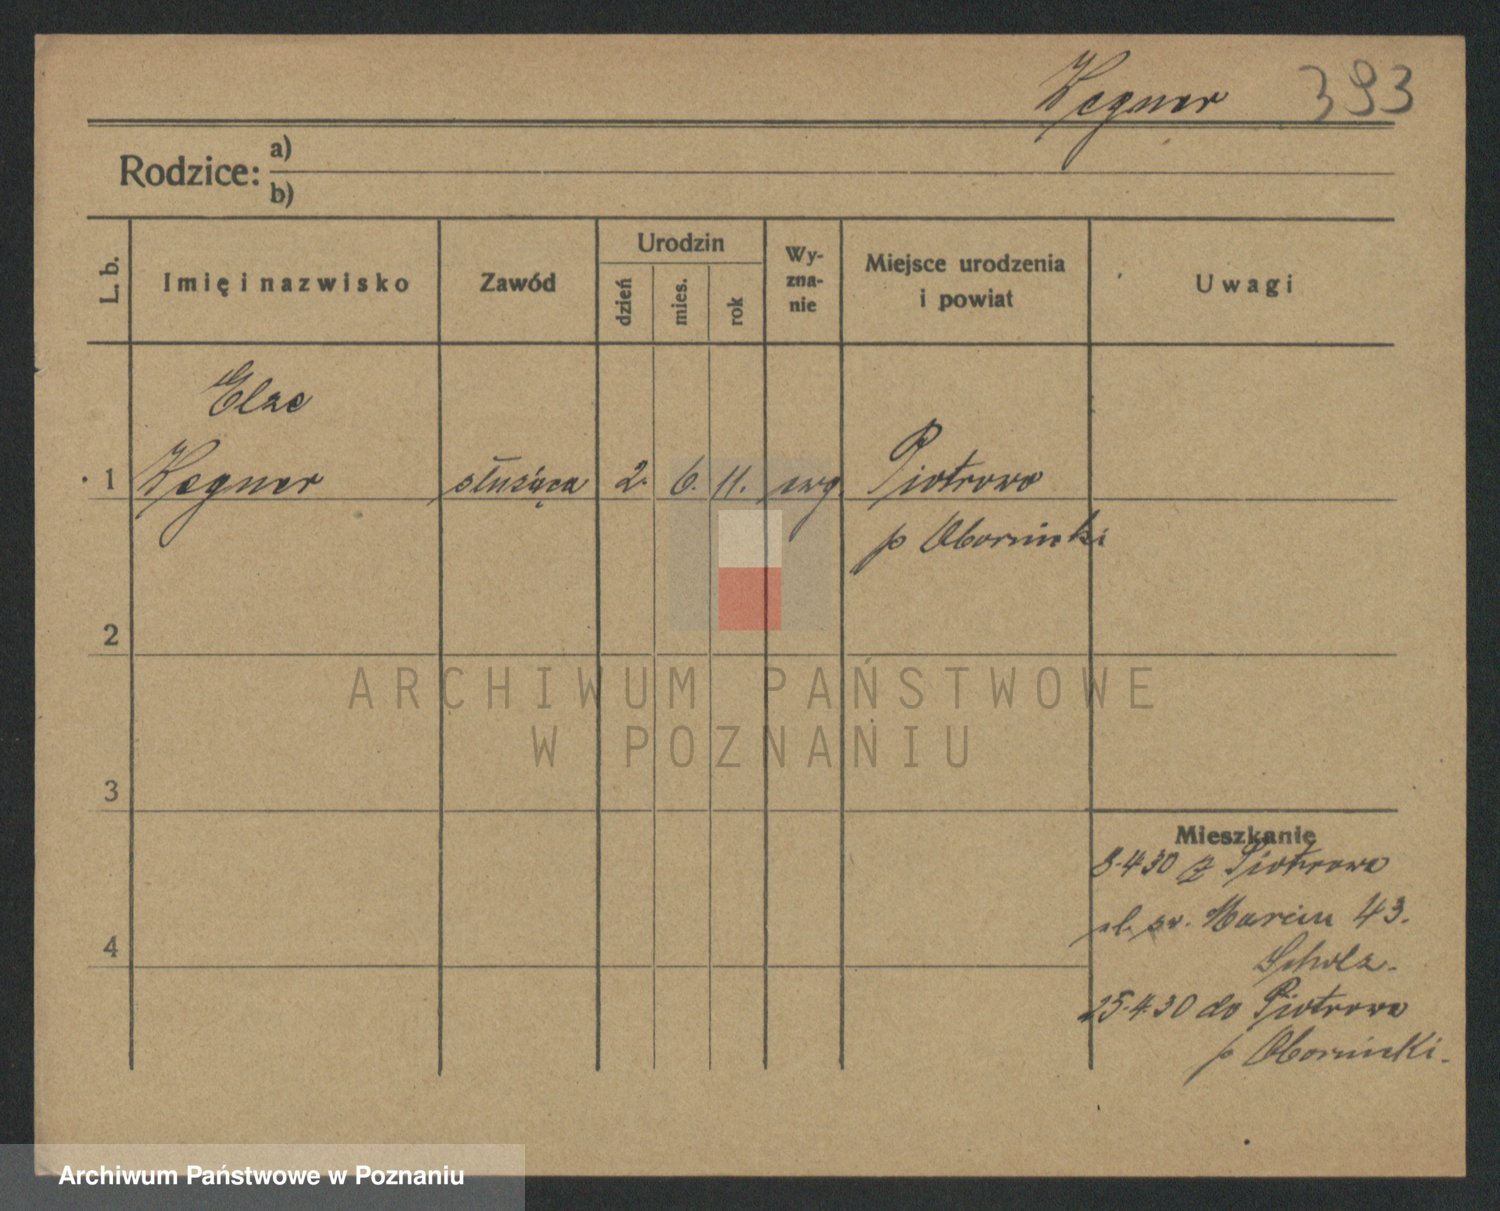 Wegner 393
Rodzice: a)
b)
L. b. Imię i nazwisko Zawód Urodzin dzień mies. rok Wy-zna-nie Miejsce urodzenia i powiat Uwagi
Elze
1 Wegner służąca 2. 6. 11. ewg. Piotrowo
p Obornicki
2
ARCHIWUM PAŃSTWOWE
W POZNANIU
3
Mieszkanie
8.4.30 z Piotrowa
ul. św. Marcin 43.
4
Scholz.
25.4.30 do Piotrowo
p Obornicki.
Archiwum Państwowe w Poznaniu